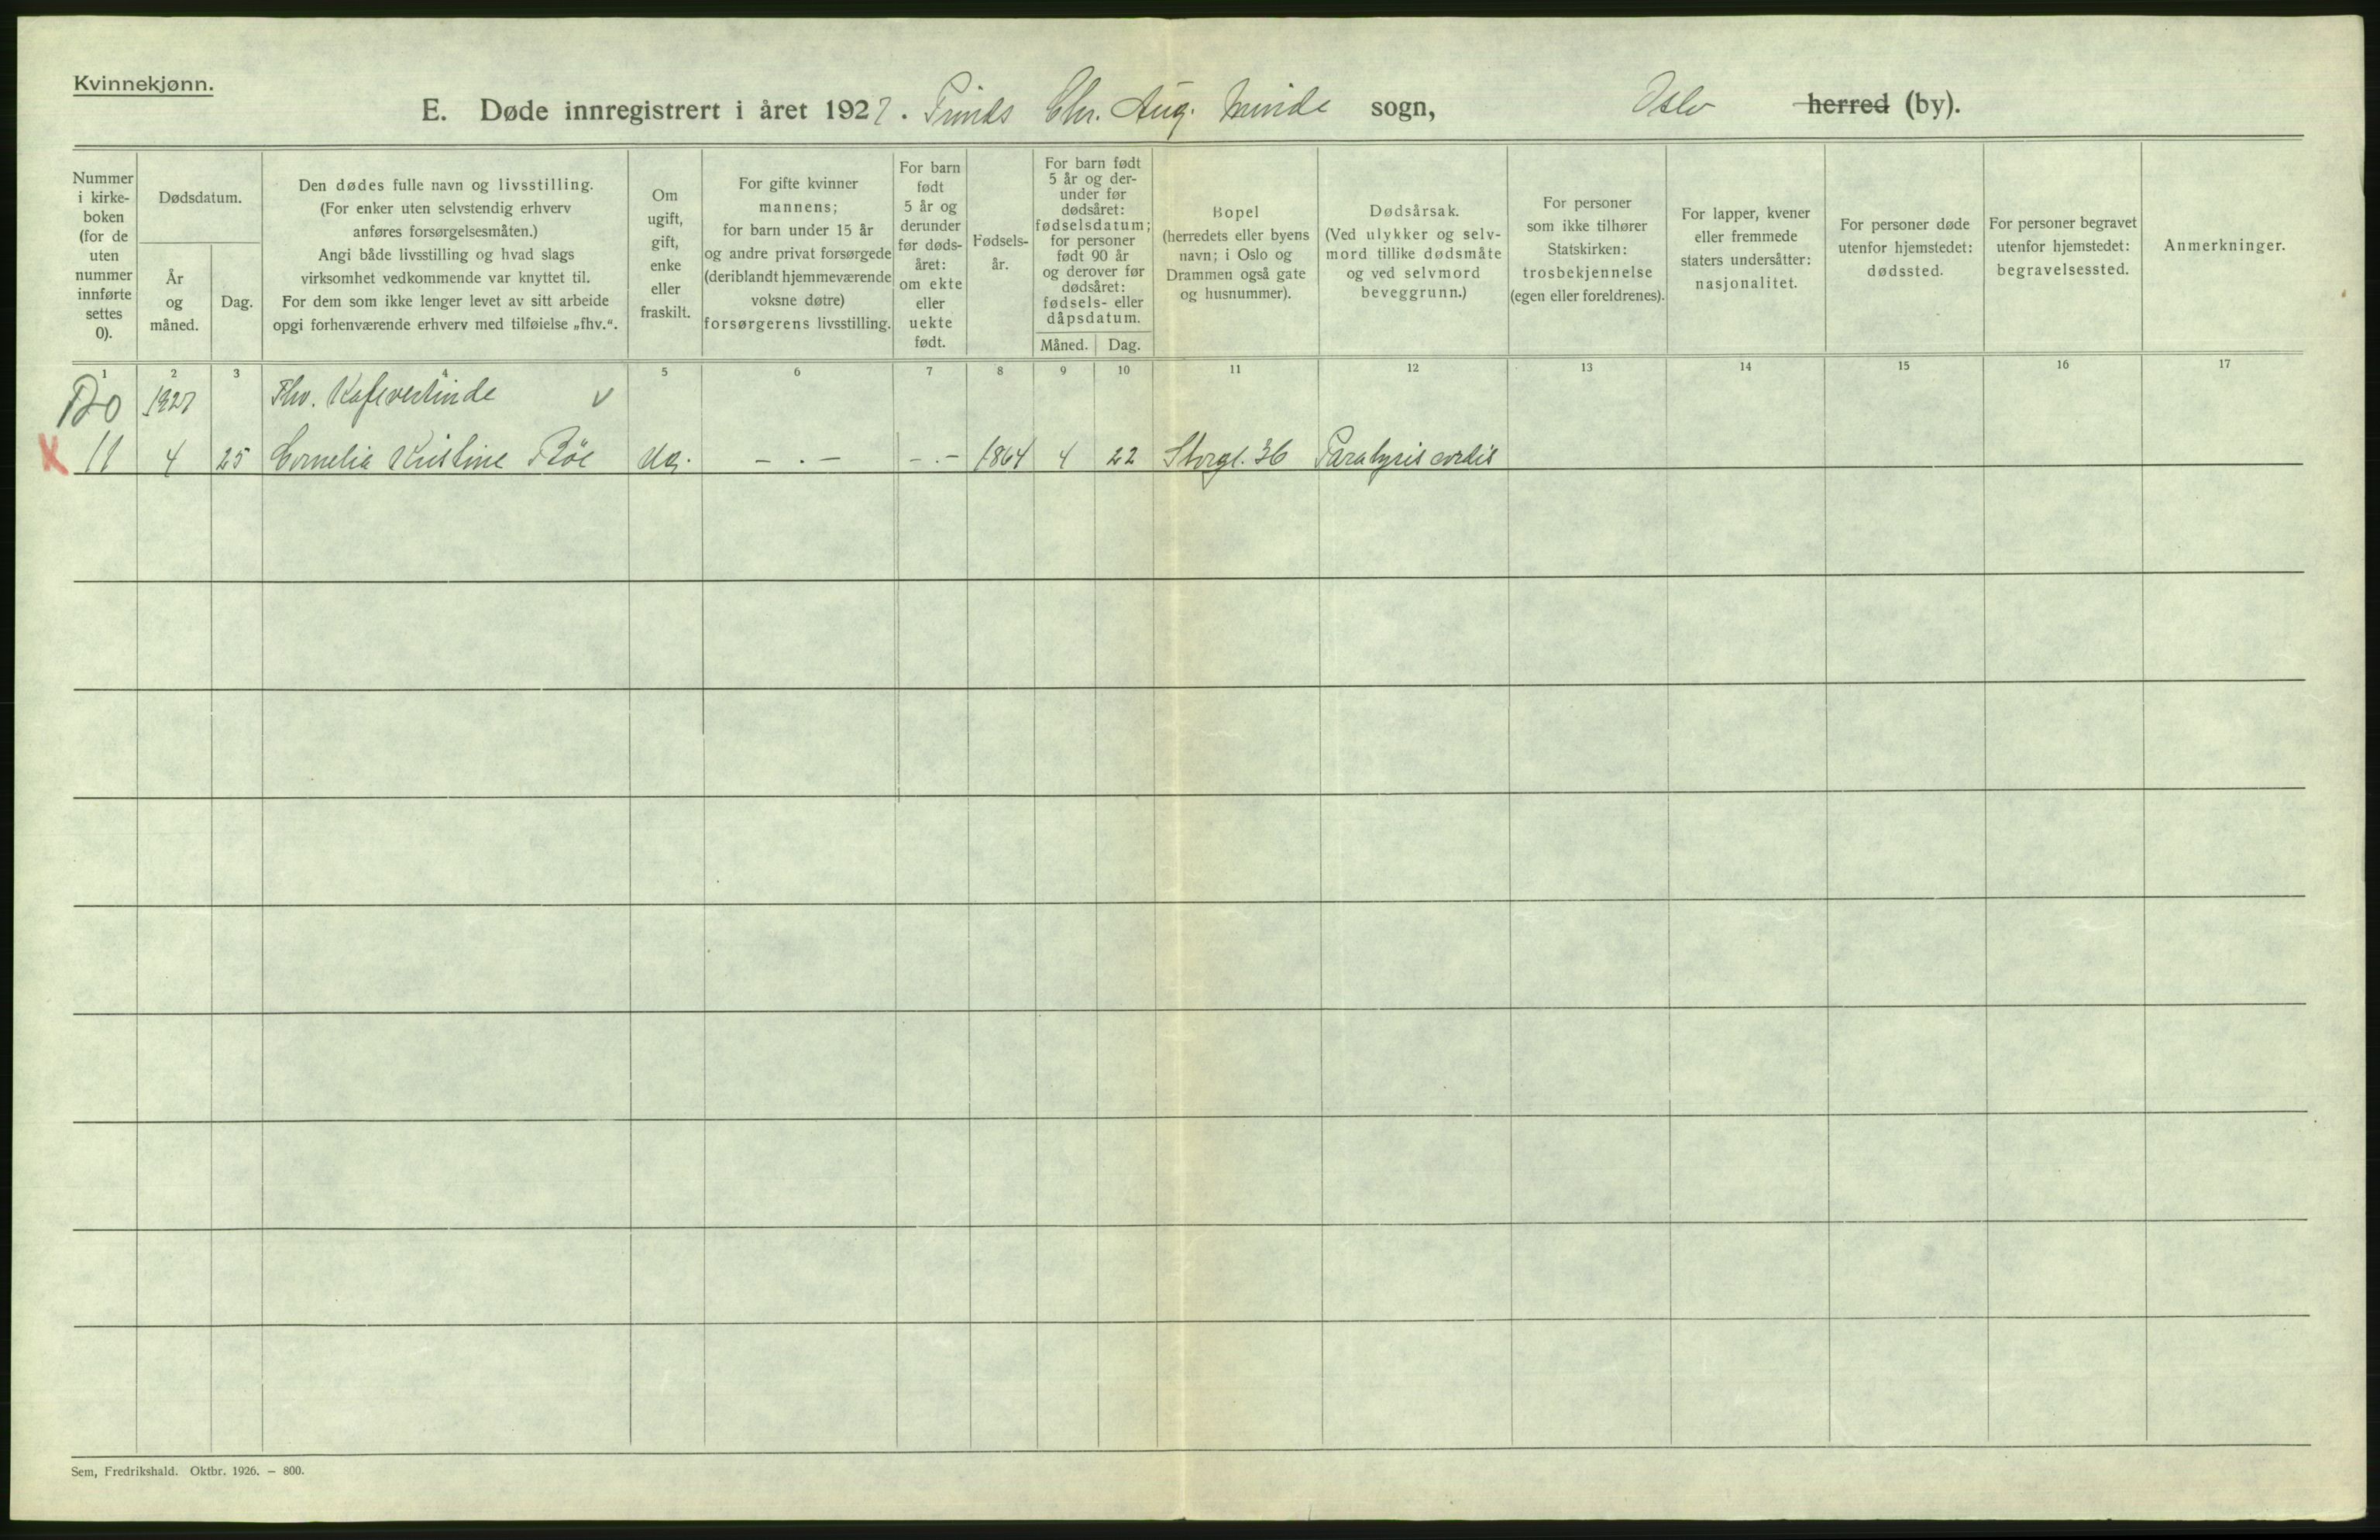 Kvinnekjønn.
E. Døde innregistrert i året 1927. Prinds Chr. Aug. Minde sogn, Oslo herred (by).
Nummer i kirke-boken (for de uten nummer innførte settes 0).
Dødsdatum.
År og måned.
Dag.
Den dødes fulle navn og livsstilling.
(For enker uten selvstendig erhverv
anføres forsørgelsesmåten.)
Angi både livsstilling og hvad slags
virksomhet vedkommende var knyttet til.
For dem som ikke lenger levet av sitt arbeide
opgi forhenværende erhverv med tilføielse „fhv.“.
Om
ugift,
gift,
enke
eller
fraskilt.
For gifte kvinner
mannens;
for barn under 15 år
og andre privat forsørgede
(deriblandt hjemmeværende
voksne døtre)
forsørgerens livsstilling.
For barn
født
5 år og
derunder
før døds-
året:
om ekte
eller
uekte
født.
Fødsels-
år.
For barn født
5 år og der-
under før
dødsåret:
fødselsdatum;
for personer
født 90 år
og derover før
dødsåret:
fødsels- eller
dåpsdatum.
Måned.
Dag.
Bopel
(herredets eller byens
navn; i Oslo og
Drammen også gate
og husnummer).
Dødsårsak.
(Ved ulykker og selv-
mord tillike dødsmåte
og ved selvmord
beveggrunn.)
For personer
som ikke tilhører
Statskirken:
trosbekjennelse
(egen eller foreldrenes).
For lapper, kvener
eller fremmede
staters undersåtter:
nasjonalitet.
For personer døde
utenfor hjemstedet:
dødssted.
For personer begravet
utenfor hjemstedet:
begravelsessted.
Anmerkninger.
1 2 3 4 5 6 7 8 9 10 11 12 13 14 15 16 17
120 1927 Fhv. Kafevertinde v
X 11 4 25 Cornelia Kristine Røe Ug. - . - - . - 1864 4 22 Storgt. 36 Paralysis cordis
Sem, Fredrikshald. Oktbr. 1926. – 800.